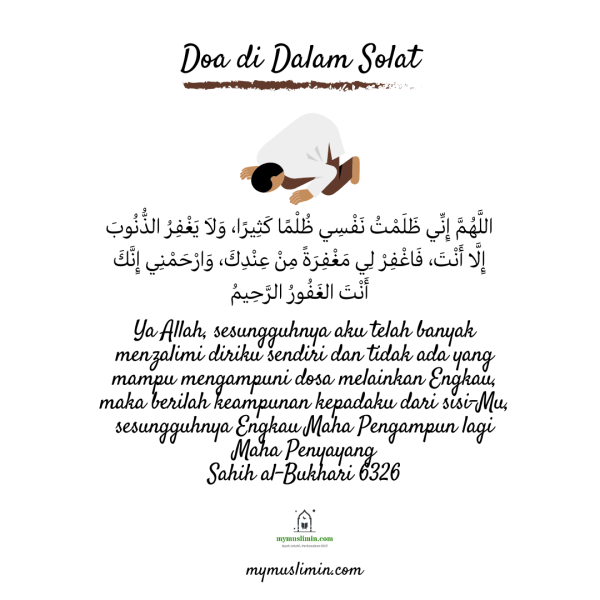 Doa di Dalam Solat
اللَّهُمَّ إِنِّي ظَلَمْتُ نَفْسِي ظُلْمًا كَثِيرًا، وَلاَ يَغْفِرُ الذُّنُوبَ
إِلَّا أَنْتَ، فَاغْفِرْ لِي مَغْفِرَةً مِنْ عِنْدِكَ، وَارْحَمْنِي إِنَّكَ
أَنْتَ الغَفُورُ الرَّحِيمُ
Ya Allah, sesungguhnya aku telah banyak
menzalimi diriku sendiri dan tidak ada yang
mampu mengampuni dosa melainkan Engkau,
maka berilah keampunan kepadaku dari sisi-Mu,
sesungguhnya Engkau Maha Pengampun lagi
Maha Penyayang
Sahih al-Bukhari 6326
mymuslimin.com
mymuslimin.com